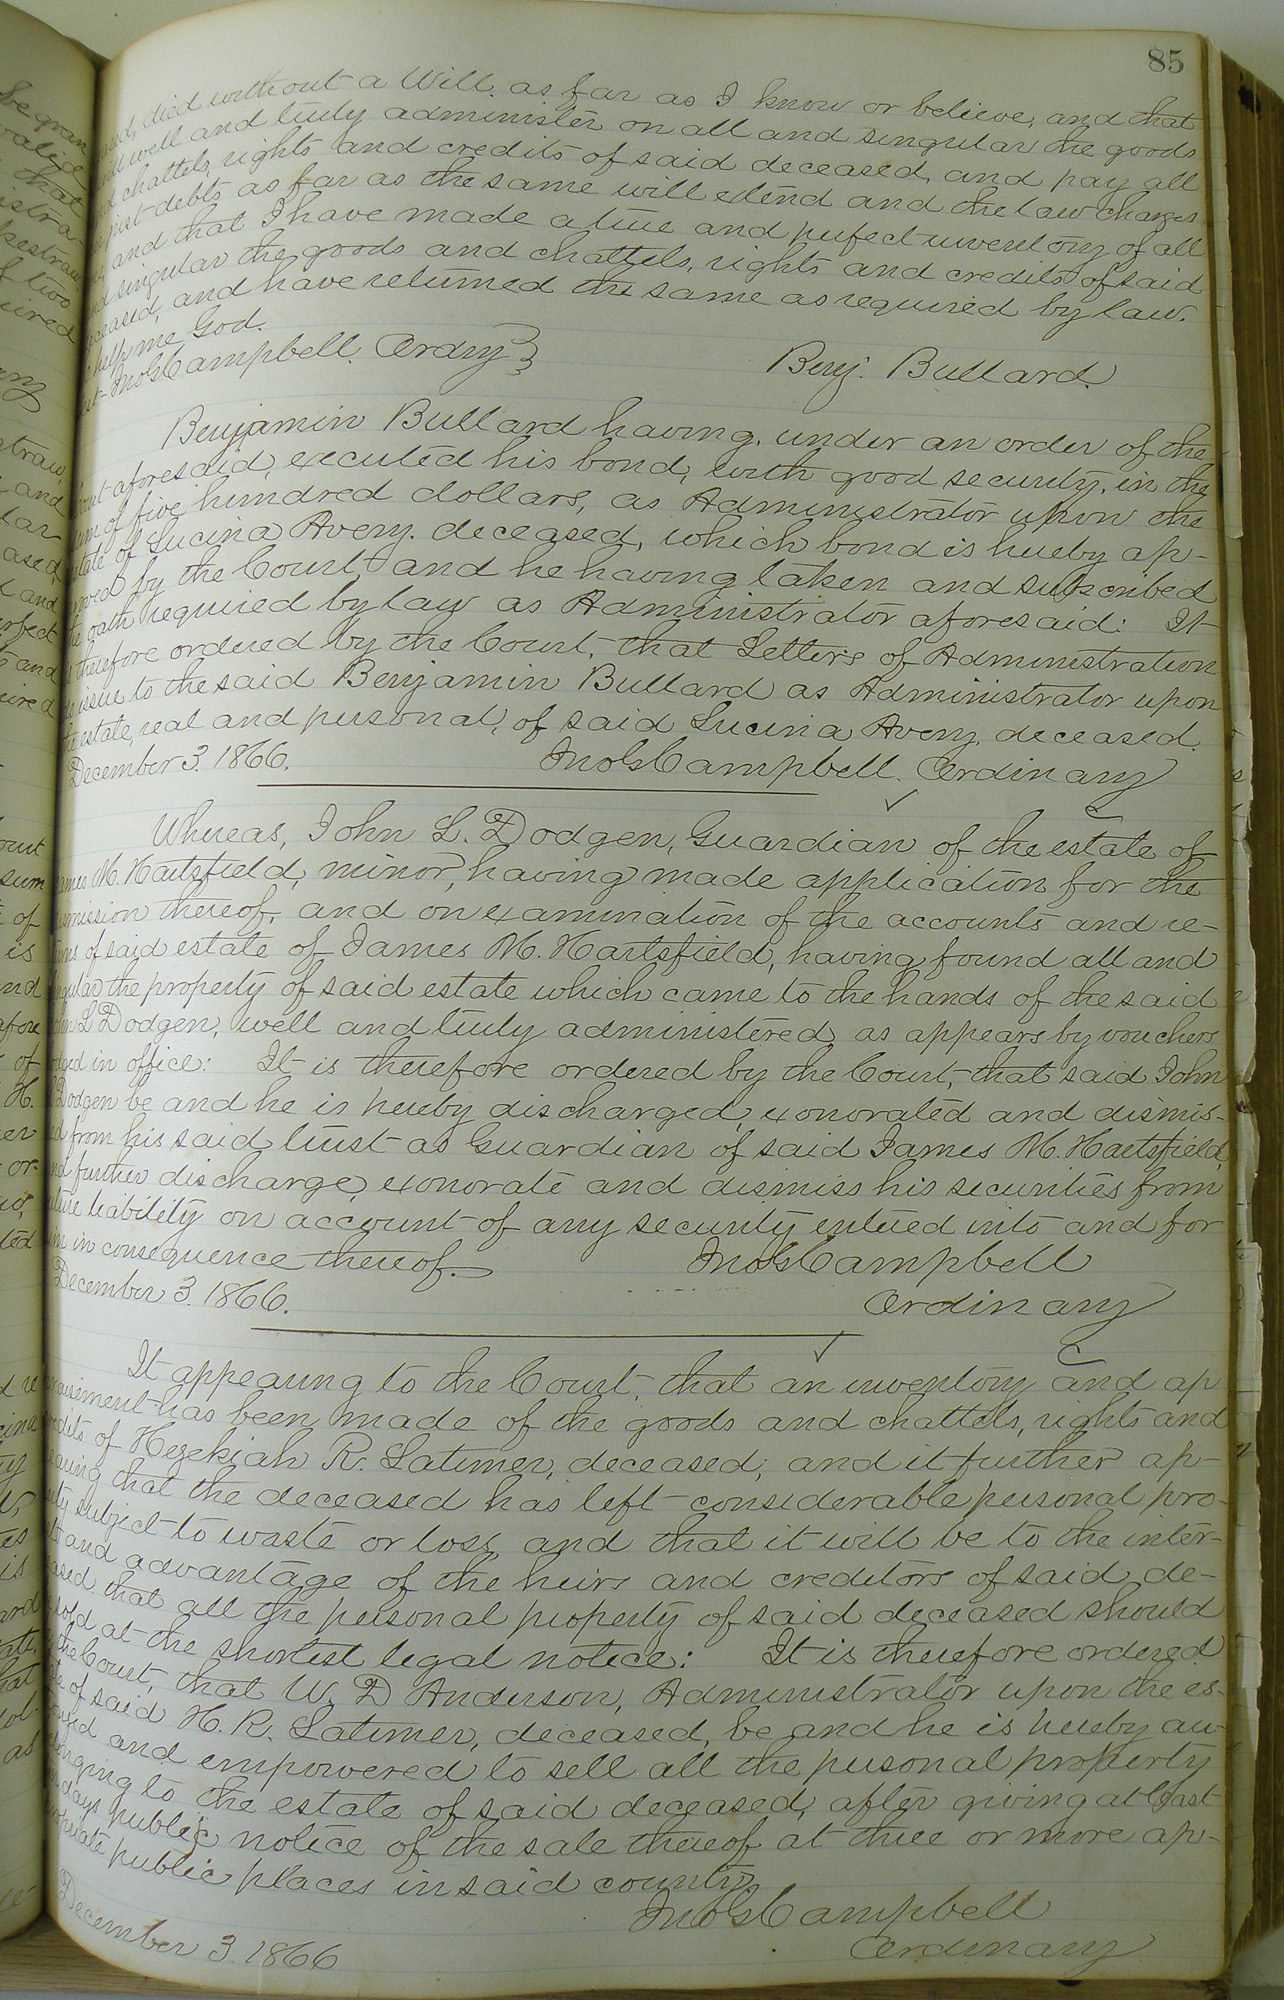 85
died without a Will, as far as I know or believe, and that
well and truly administer on all and singular the goods
chattels, rights and credits of said deceased, and pay all
just debts as far as the same will extend and the law charges
and that I have made a true and perfect inventory of all
singular the goods and chattels, rights and credits of said
deceased, and have returned the same as required by law.
help me God.
Jno G Campbell, Ordry
Benj. Bullard.
Benjamin Bullard having, under an order of the
Court aforesaid, executed his bond, with good security, in the
sum of five hundred dollars, as Administrator upon the
estate of Lucina Avery, deceased, which bond is hereby ap-
proved by the Court and he having taken and subscribed
the oath required by law as Administrator aforesaid: It
therefore ordered by the Court, that Letters of Administration
do issue to the said Benjamin Bullard as Administrator upon
the estate, real and personal, of said Lucina Avery, deceased.
December 3. 1866.
Jno G Campbell. Ordinary
Whereas, John L. Dodgen, Guardian of the estate of
James M. Hartsfield, minor, having made application for the
dismission thereof, and on examination of the accounts and re-
turns of said estate of James M. Hartsfield, having found all and
singular the property of said estate which came to the hands of the said
John L Dodgen, well and truly administered, as appears by vouchers
lodged in office: It is therefore ordered by the Court, that said John
L Dodgen be and he is hereby discharged, exonorated and dismis-
ed from his said trust as Guardian of said James M. Hartsfield,
and further discharge, exonorate and dismiss his securities from
future liability on account of any security entered into and for
him in consequence thereof.
Jno G Campbell
December 3. 1866.
Ordinary
It appearing to the Court, that an inventory and ap
praisement has been made of the goods and chattels, rights and
credits of Hezekiah R. Latimer, deceased; and it further ap-
pearing that the deceased has left considerable personal pro-
perty subject to waste or loss, and that it will be to the inter-
est and advantage of the heirs and creditors of said de-
ceased, that all the personal property of said deceased should
be sold at the shortest legal notice: It is therefore ordered
by the Court, that W. D Anderson, Administrator upon the es-
tate of said H. R. Latimer, deceased, be and he is hereby au-
thorized and empowered to sell all the personal property
belonging to the estate of said deceased, after giving at least
days public notice of the sale thereof at three or more ap-
propriate public places in said county.
Jno G Campbell
December 3. 1866
Ordinary